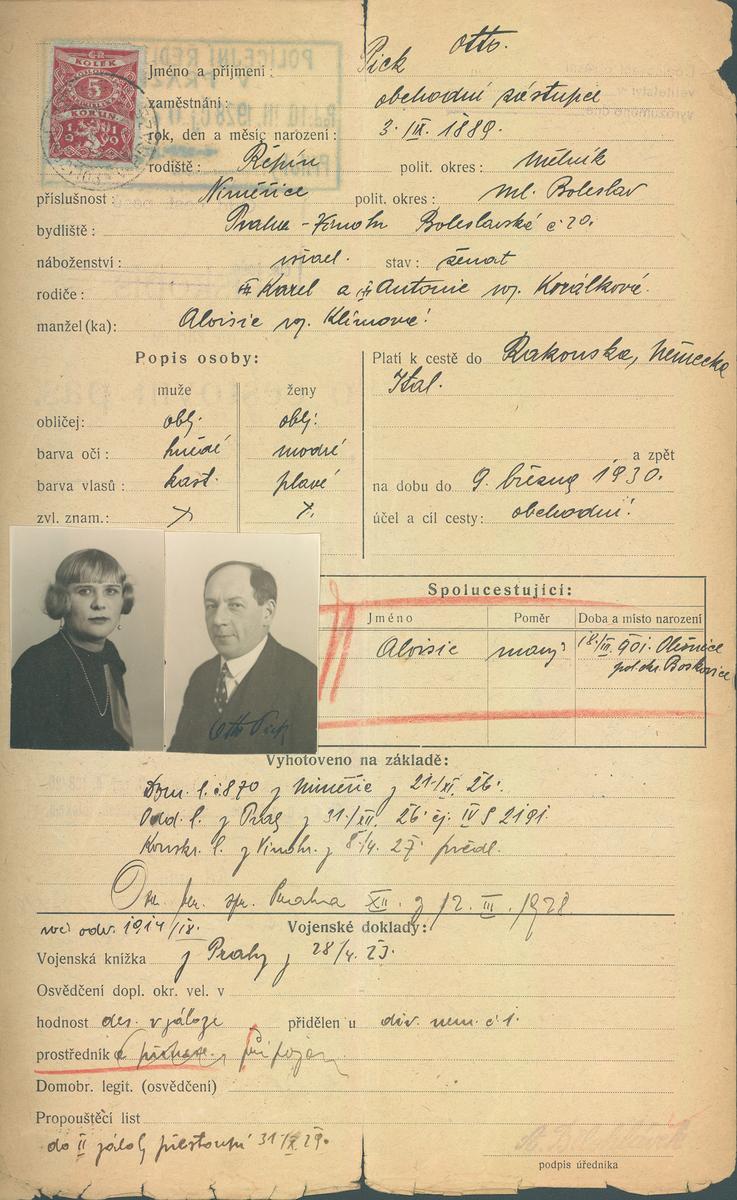 ČR
KOLEK
5
KORUN
POLICEJNÍ ŘEDIT
V PRAZE
10. III. 1928
Jméno a příjmení: Pick Otto.
zaměstnání: obchodní zástupce
rok, den a měsíc narození: 3. IX. 1889.
rodiště: Řepín polit. okres: Mělník
příslušnost: Niměřice polit. okres: Ml. Boleslav
bydliště: Praha - Vinohr Boleslavská č 20.
náboženství: israel. stav: ženat
rodiče: Karel a Antonie roz. Korálkové.
manžel (ka): Aloisie roz. Klímová!
Popis osoby:
muže ženy
obličej: obl. obl.
barva očí: hnědé modré
barva vlasů: kašt. plavé
zvl. znam.: x x.
Platí k cestě do Rakouska, Německa
Ital.
a zpět
na dobu do 9. března 1930.
účel a cíl cesty: obchodní!
Spolucestující:
Jméno Poměr Doba a místo narození
Aloisie manž. 18/III. 901. Olešnice
pol. okr. Boskovice
Otto Pick
Vyhotoveno na základě:
Dom. l. č 870 z Niměřic z 21/XI. 26.
Odd. l. z Prahy z 31/XII. 26. čj. IV 9 2191.
Konskr. l. z Vinohr. z 8/4. 27. předl.
Praha XII. z 12. III. 1928
odv. 1914/IX.
Vojenské doklady:
Vojenská knížka z Prahy z 28/4. 23.
Osvědčení dopl. okr. vel. v
hodnost des. v záloze přidělen u div. nem. č 1.
prostředník
Domobr. legit. (osvědčení)
Propouštěcí list
do II zálohy přestoupí 31/X 29.
podpis úředníka